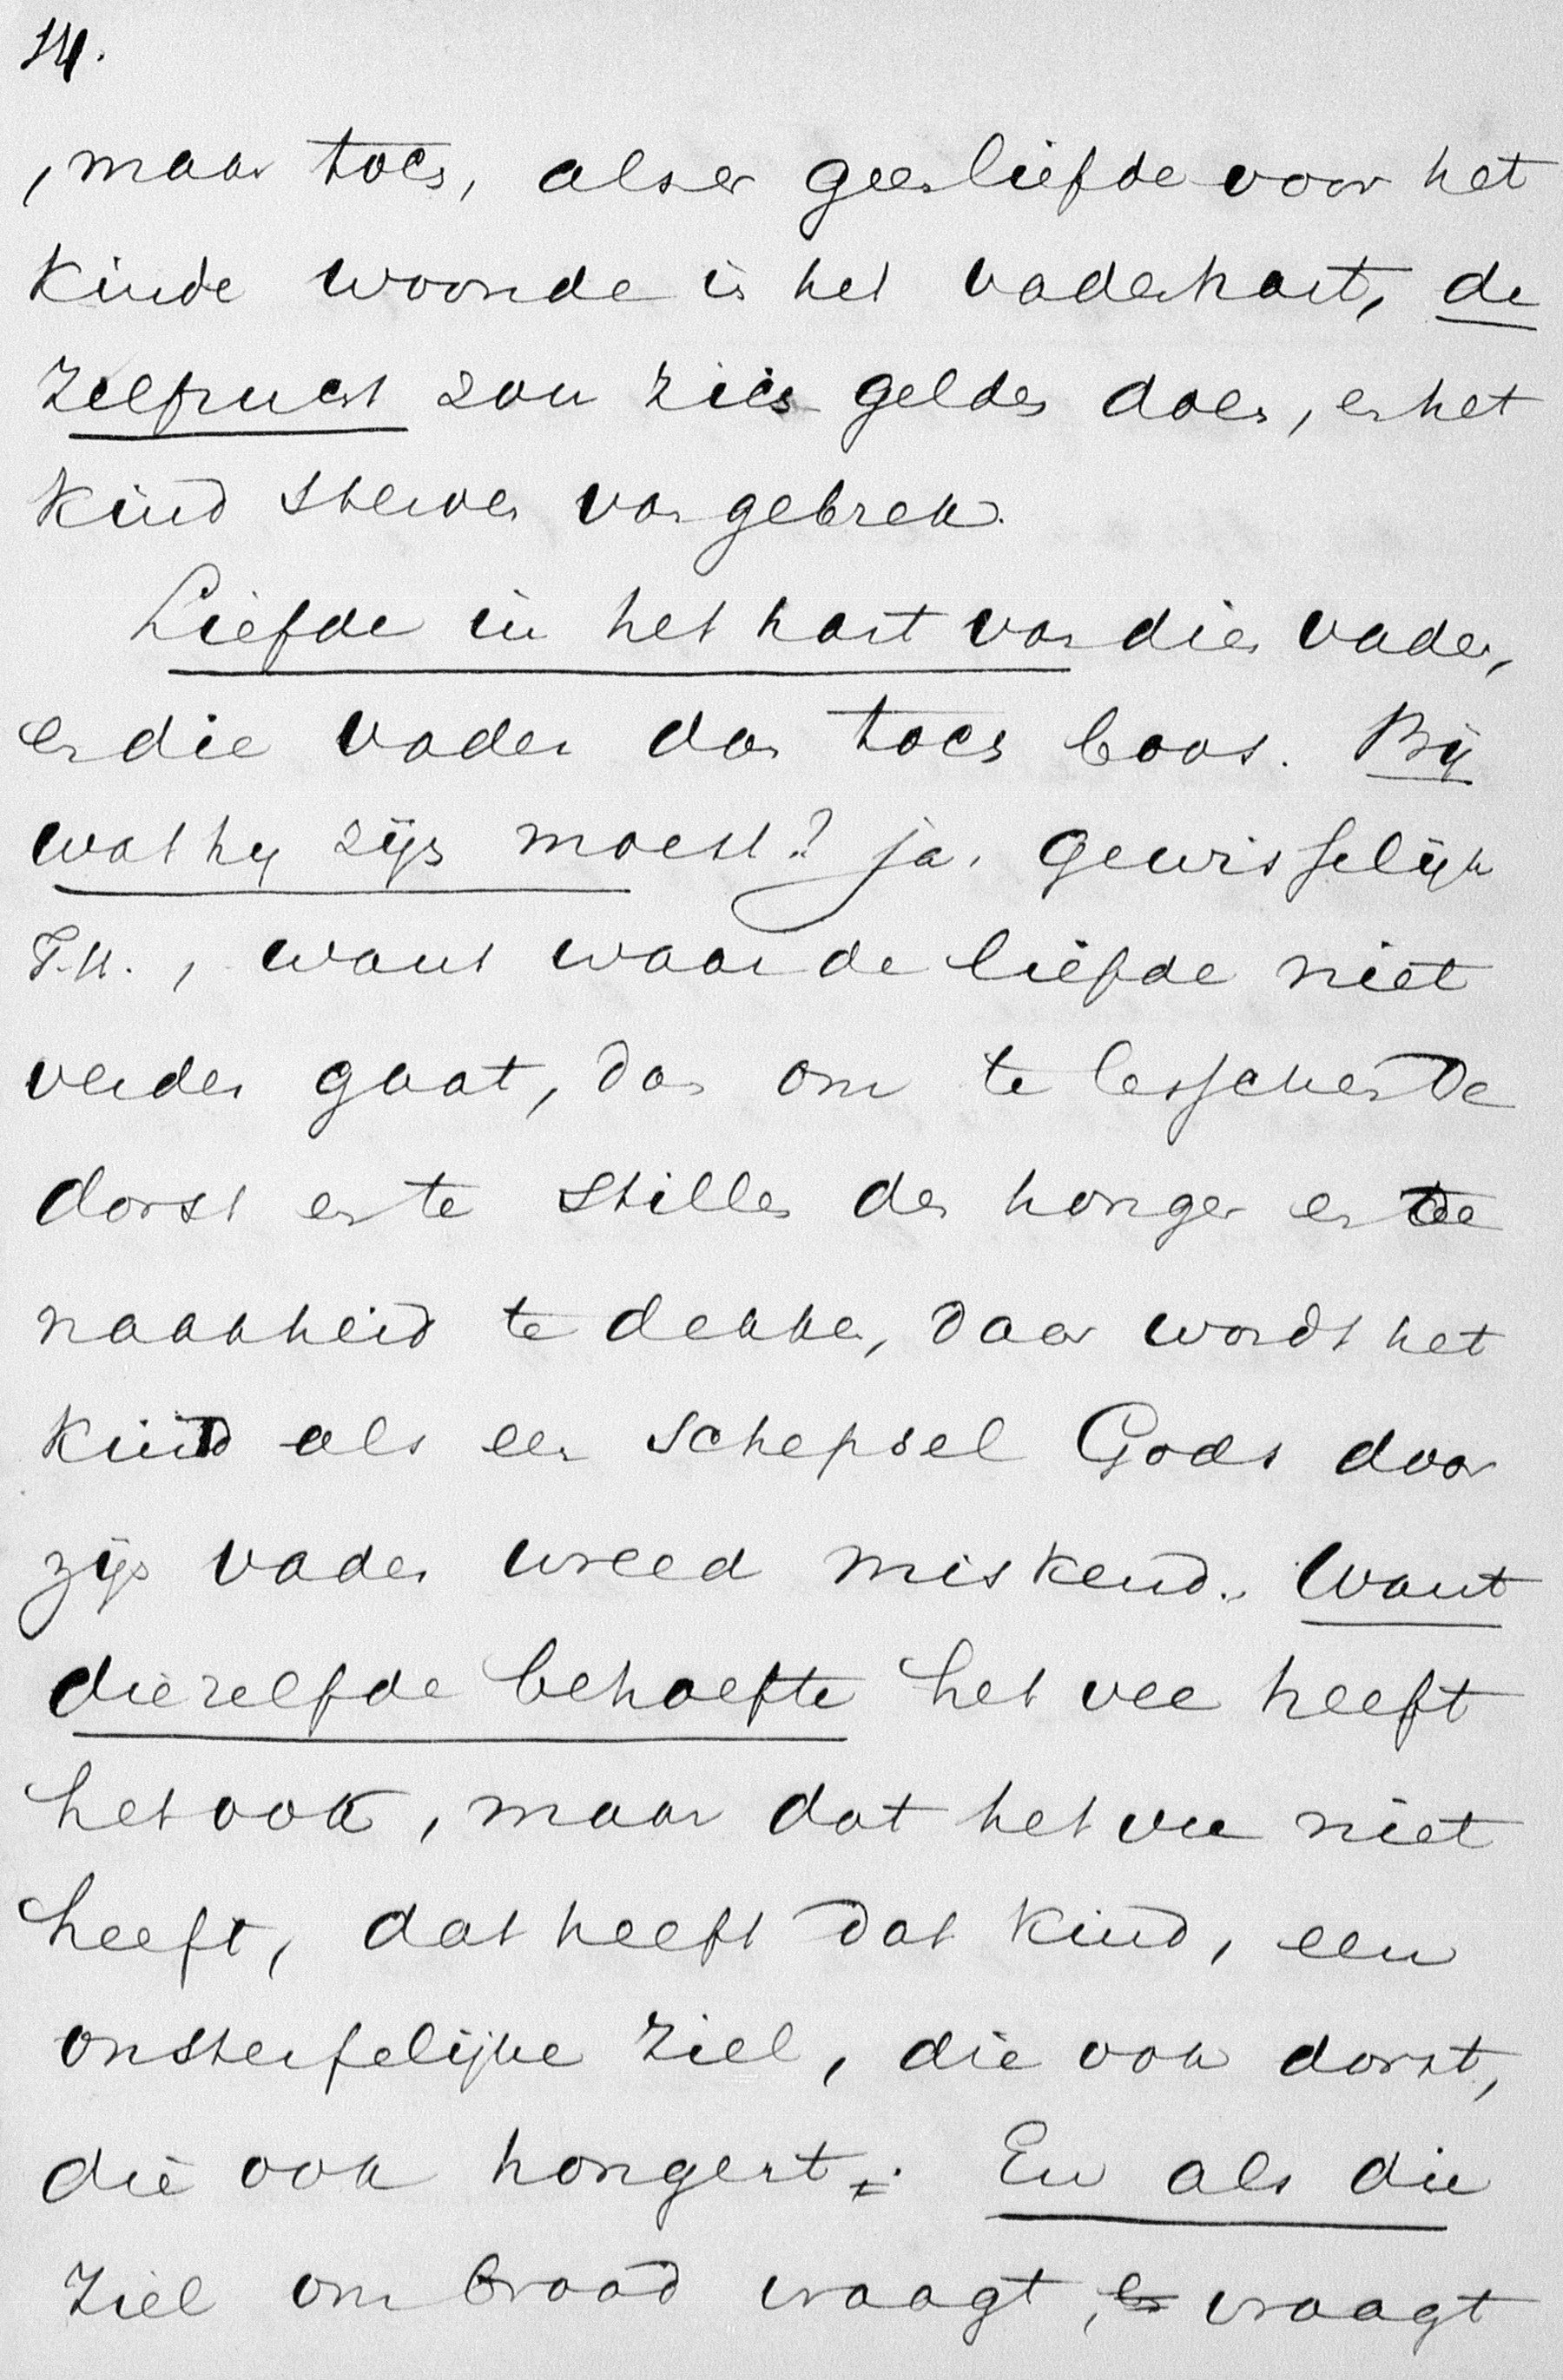 14.
, maar toch, als er geen liefde voor het
kinde woonde in het vaderhart, de
zelfzucht zou zich gelden doen, en het
kind sterven van gebrek.
Liefde in het hart van dien vader,
en die vader dan toch boos. Bij
wat hij zijn moest? ja, gewisselijk
T.H., want waar de liefde niet
verder gaat, dan om te lesschen de
dorst en te stillen den honger en de
naakheid te dekken, daar wordt het
kind als een schepsel Gods door
zijn vader wreed miskend. Want
diezelfde behoefte het vee heeft
het ook, maar dat het vee niet
heeft, dat heeft dat kind, een
onsterfelijke ziel, die ook dorst,
die ook hongert. En als die
ziel om brood vraagt, en vraagt